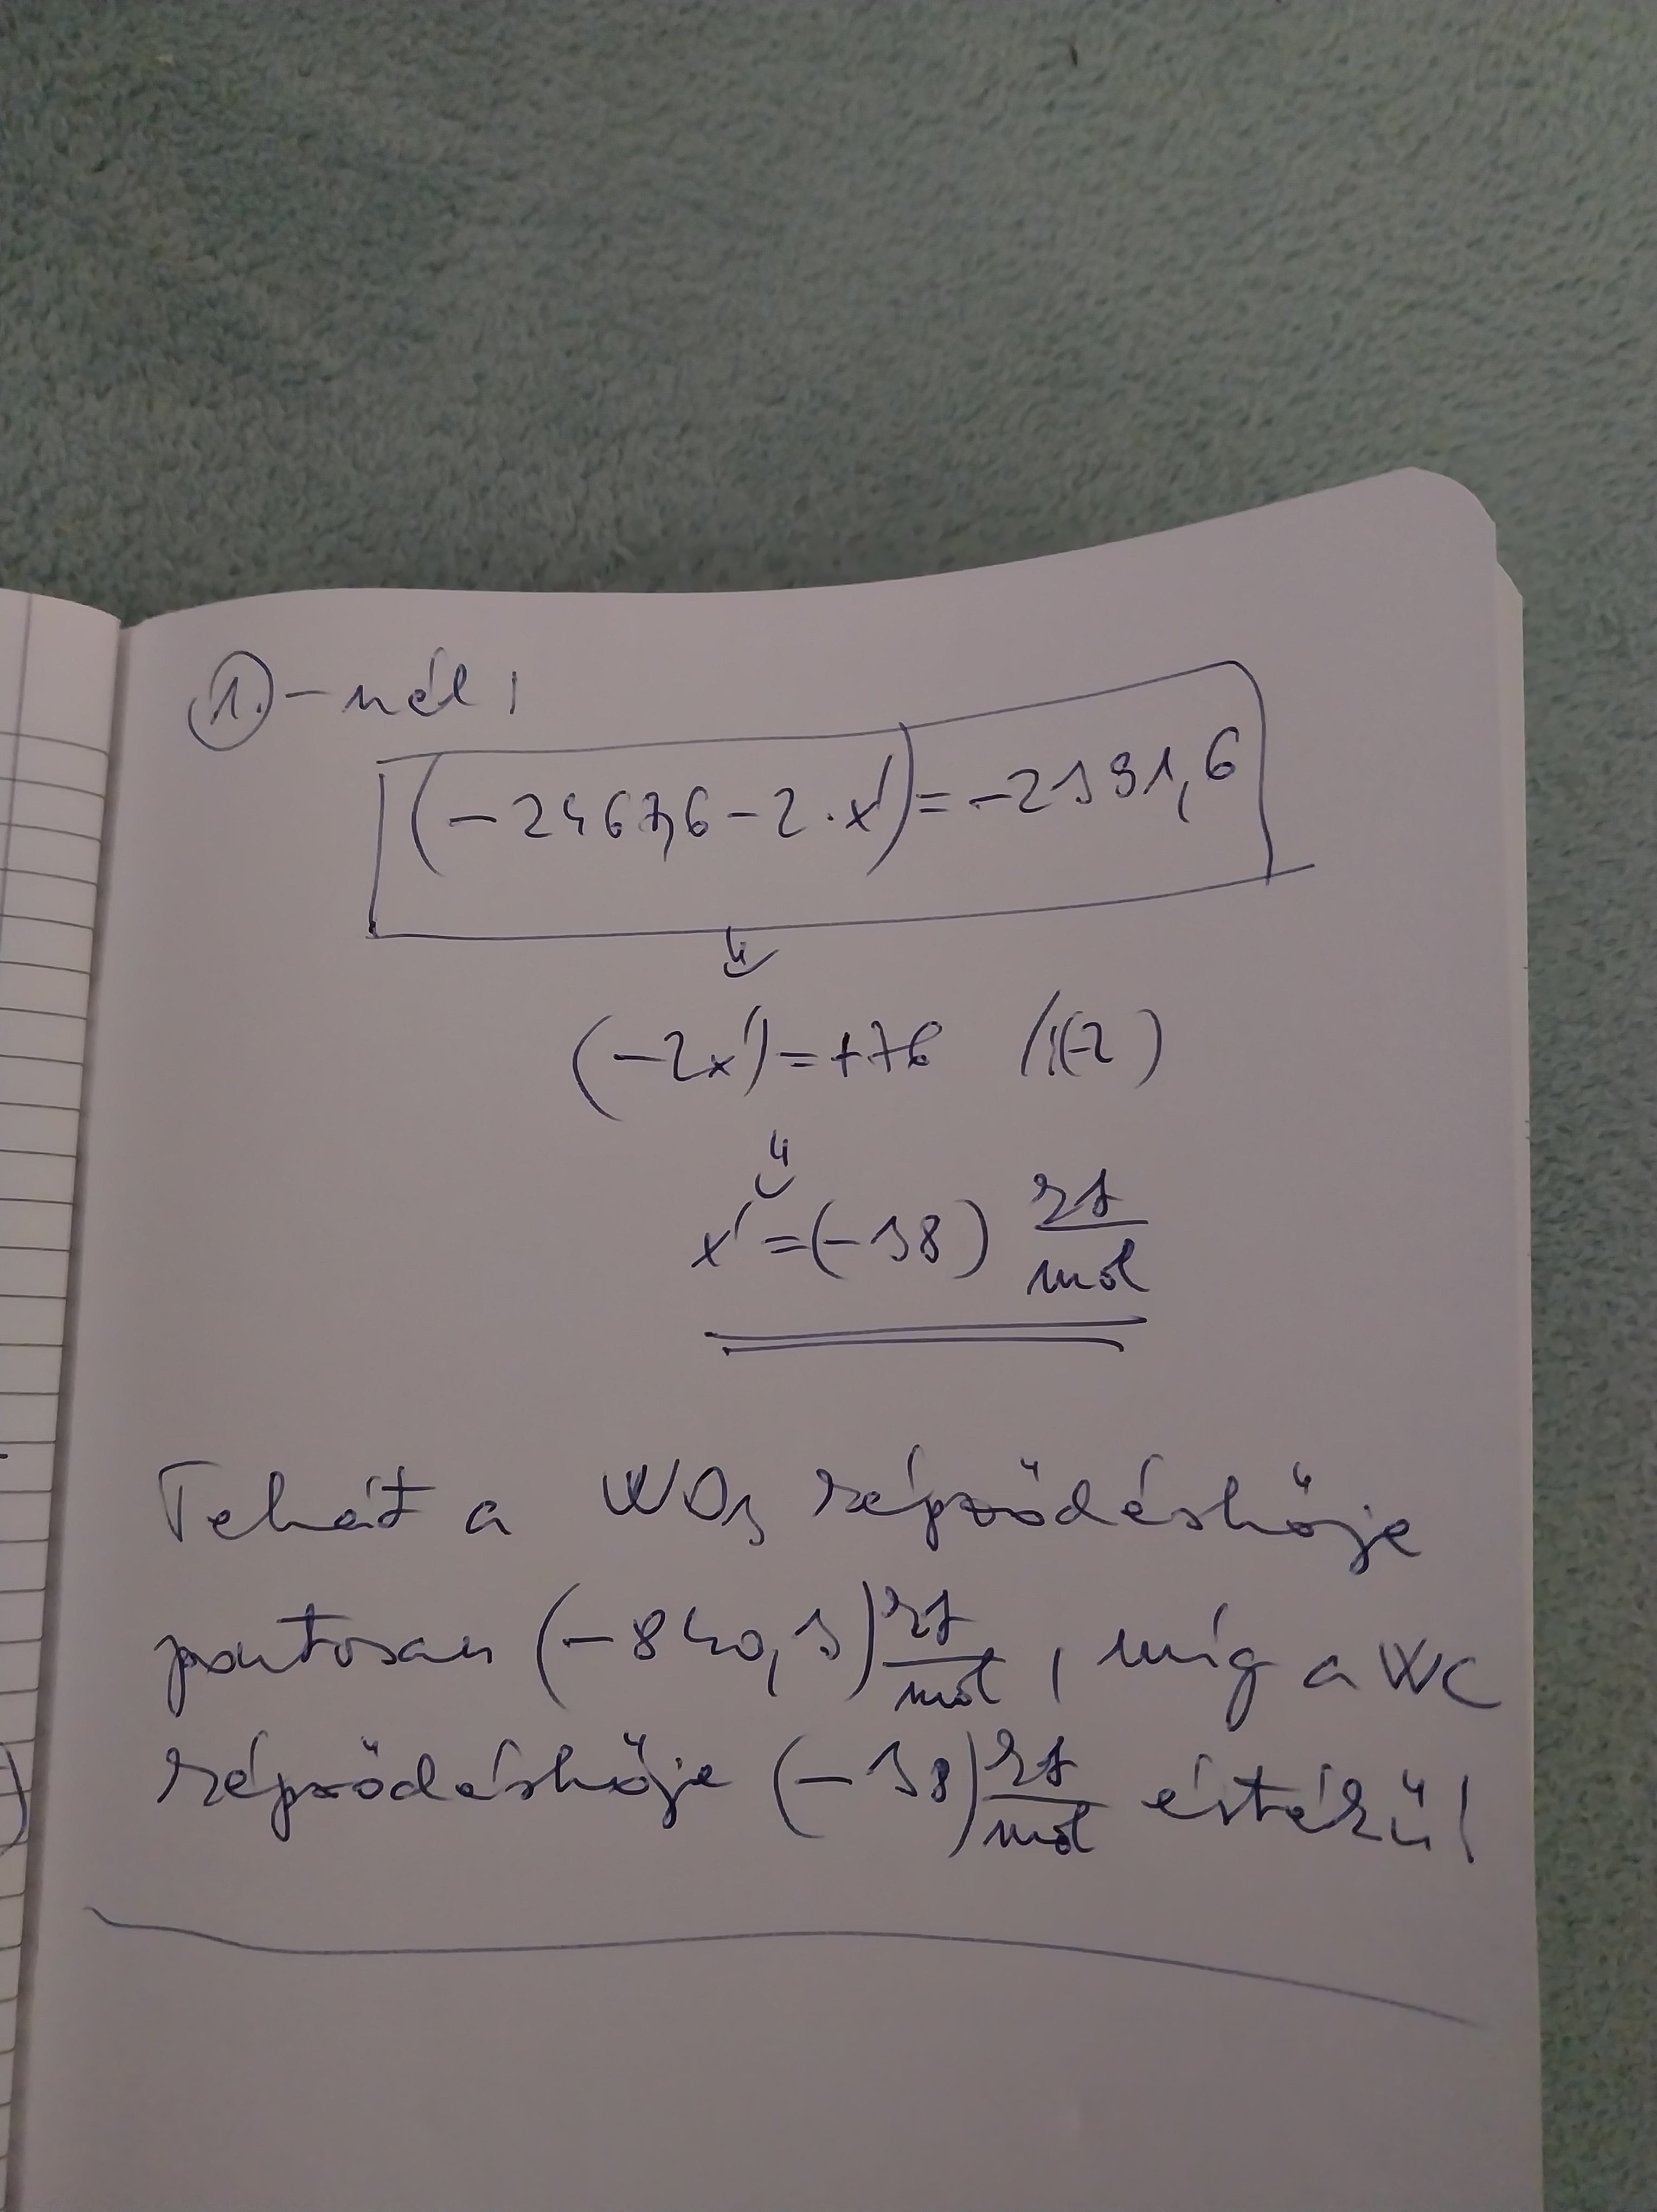 ①.-nél:
(-2467,6-2·x')=-2391,6
⇓
(-2x')=+76 /:(-2)
⇓
x'=(-38) kJ/mol
Tehát a WO₃ képződéshője
pontosan (-840,3) kJ/mol, míg a WC
képződéshője (-38) kJ/mol értékű!